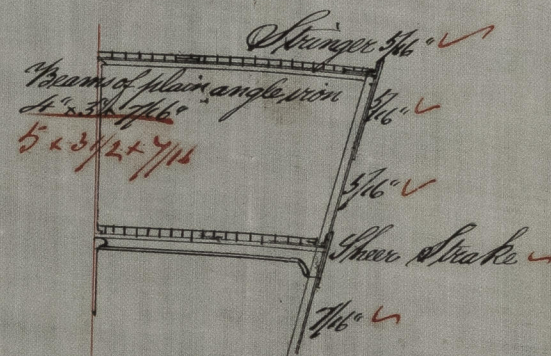 Stringer 5/16"
Beams of plain angle iron
4" x 3½ 7/16"
5 x 3 1/2 x 7/16
5/16"
5/16"
Sheer Strake
7/16"